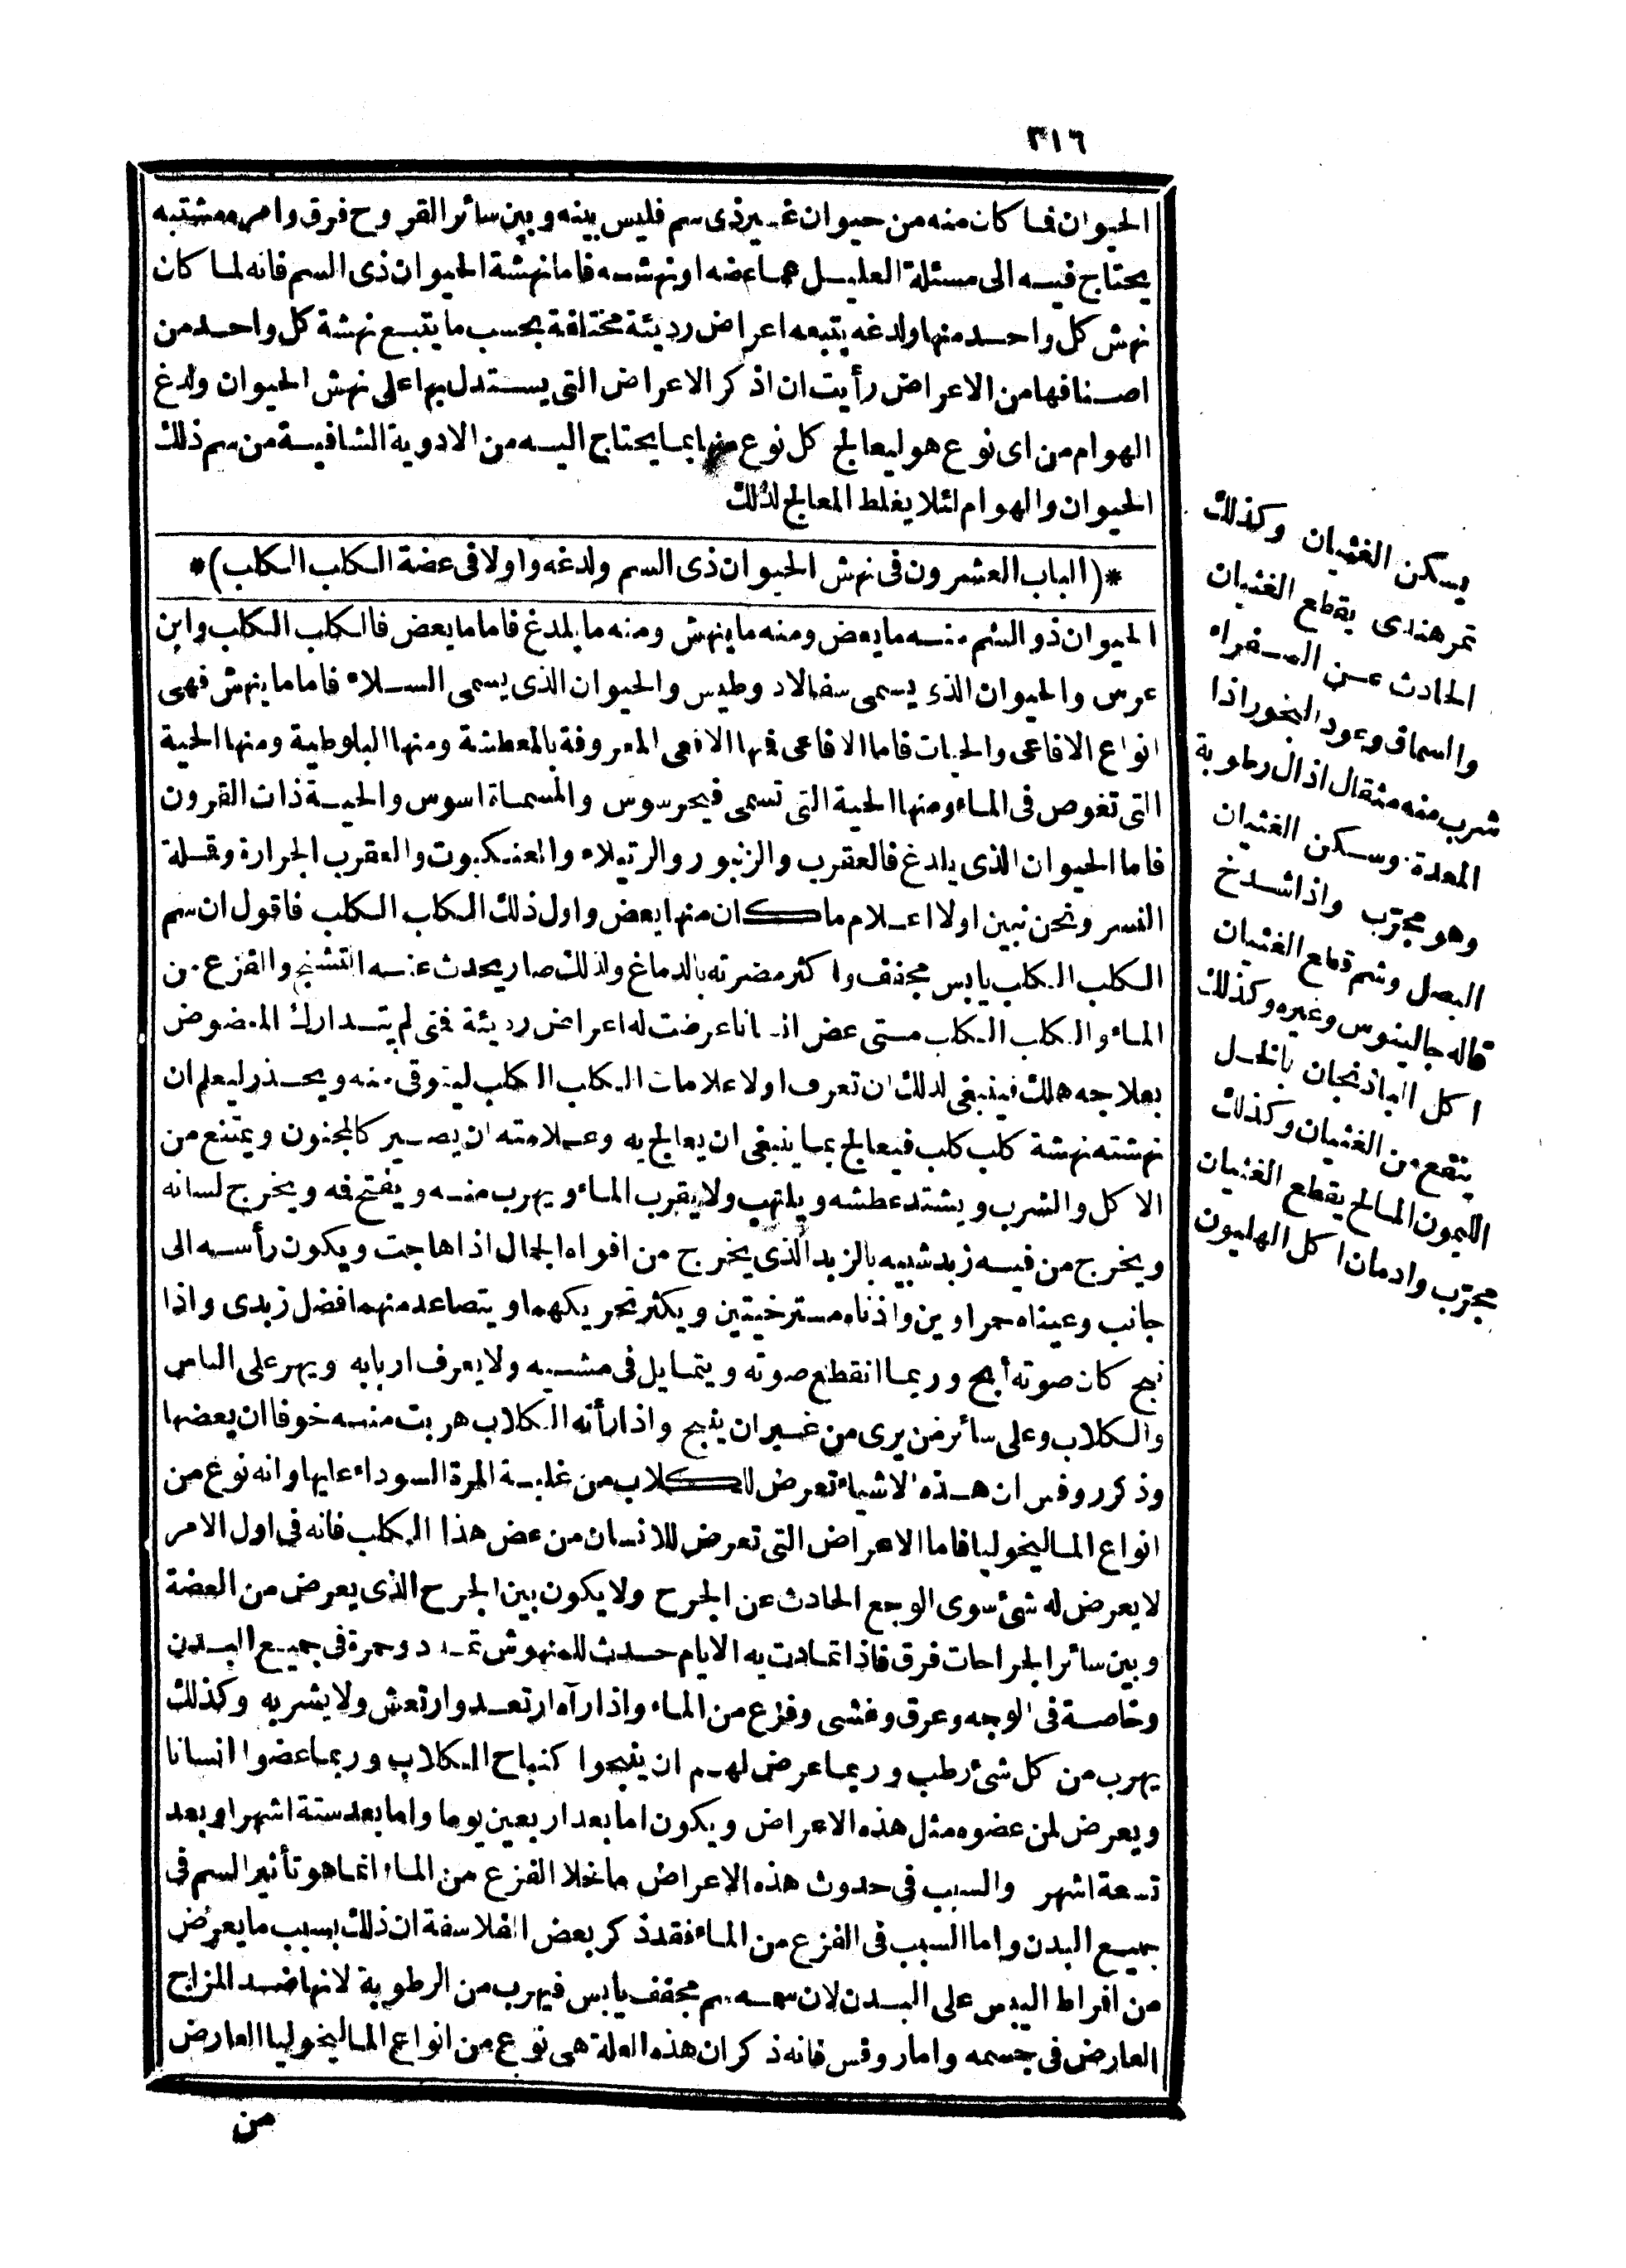 ٣١٦
الحيوان فما كان منه من حيوان غير ذى سم فليس بينه وبين سائر القروح فرق وامره مشتبه
يحتاج فيه الى مسئلة العليل عما عضه او نهشه فاما نهشة الحيوان ذى السم فانه لما كان
نهش كل واحد منها ولدغه يتبعه اعراض رديئة مختلفة بحسب ما يتبع نهشة كل واحد من
اصنافها من الاعراض رأيت ان اذكر الاعراض التى يستدل بها على نهش الحيوان ولدغ
الهوام من اى نوع هو ليعالج كل نوع منها بما يحتاج اليه من الادوية الشافية من سم ذلك
الحيوان والهوام لئلا يغلط المعالج لذلك
*(الباب العشرون فى نهش الحيوان ذى السم ولدغه واولا فى عضة الكلب الكلب)*
الحيوان ذو السم منه ما يعض ومنه ما ينهش ومنه ما يلدغ فاما ما يعض فالكلب الكلب وابن
عرس والحيوان الذى يسمى سفالاد وطيس والحيوان الذى يسمى السلاء فاما ما ينهش فهى
انواع الافاعى والحيات فاما الافاعى فمنها الافعى المعروفة بالمعطشة ومنها البلوطية ومنها الحية
التى تغوص فى الماء ومنها الحية التى تسمى فيحرسوس والمسماة اسوس والحية ذات القرون
فاما الحيوان الذى يلدغ فالعقرب والزنبور والرتيلاء والعنكبوت والعقرب الجرارة وقملة
النسر ونحن نبين اولا اعلام ما كان منها يعض واول ذلك الكلب الكلب فاقول ان سم
الكلب الكلب يابس مجفف واكثر مضرته بالدماغ ولذلك صار يحدث عنه التشنج والفزع من
الماء والكلب الكلب متى عض انسانا عرضت له اعراض رديئة فتى لم يتدارك المعضوض
بعلاجه هلك فينبغى لذلك ان تعرف اولا علامات الكلب الكلب ليتوقى منه ويحذر ليعلم ان
نهشته نهشة كلب كلب فيعالج بما ينبغى ان يعالج به وعلامته ان يصير كالمجنون ويمتنع من
الاكل والشرب ويشتد عطشه ويلتهب ولا يقرب الماء ويهرب منه ويفتح فه ويخرج لسانه
ويخرج من فيه زبد شبيه بالزبد الذى يخرج من افواه الجمال اذا هاجت ويكون رأسه الى
جانب وعيناه حمراوين واذناه مسترخيتين ويكثر تحريكهما ويتصاعد منهما فضل زبدى واذا
نبح كان صوته أبح وربما انقطع صوته ويتمايل فى مشيه ولا يعرف اربابه ويهر على الناس
والكلاب وعلى سائر من يرى من غير ان ينبح واذا رأته الكلاب هربت منه خوفا ان يعضها
وذكر روفس ان هذه الاشياء تعرض للكلاب من غلبة المرة السوداء عليها وانه نوع من
انواع الماليخوليا فاما الاعراض التى تعرض للانسان من عض هذا الكلب فانه فى اول الامر
لا يعرض له شئ سوى الوجع الحادث عن الجرح ولا يكون بين الجرح الذى يعرض من العضة
وبين سائر الجراحات فرق فاذا تمادت به الايام حدث للمنهوش تمدد وحمرة فى جميع البدن
وخاصة فى الوجه وعرق وغشى وفزع من الماء واذا رآه ارتعد وارتعش ولا يشربه وكذلك
يهرب من كل شئ رطب وربما عرض لهم ان ينبحوا كنباح الكلاب وربما عضوا انسانا
ويعرض لمن عضوه مثل هذه الاعراض ويكون اما بعد اربعين يوما واما بعد ستة اشهر او بعد
تسعة اشهر والسبب فى حدوث هذه الاعراض ما خلا الفزع من الماء انما هو تأثير السم فى
جميع البدن واما السبب فى الفزع من الماء فقد ذكر بعض الفلاسفة ان ذلك بسبب ما يعرض
من افراط اليبس على البدن لان سمه سم مجفف يابس فيهرب من الرطوبة لانها ضد المزاج
العارض فى جسمه واما روفس فانه ذكر ان هذه العلة هى نوع من انواع الماليخوليا العارض
من
يسكن الغثيان وكذلك
تمر هندى يقطع الغثيان
الحادث عن الصفراء
والسماق وعود البخور اذا
شرب منه مثقال اذال رطوبة
المعدة وسكن الغثيان
وهو مجرّب واذا شدخ
البصل وشم قطع الغثيان
قاله جالينوس وغيره وكذلك
اكل الباذنجان بالخل
ينفع من الغثيان وكذلك
الليمون المالح يقطع الغثيان
مجرّب وادمان اكل الهليون